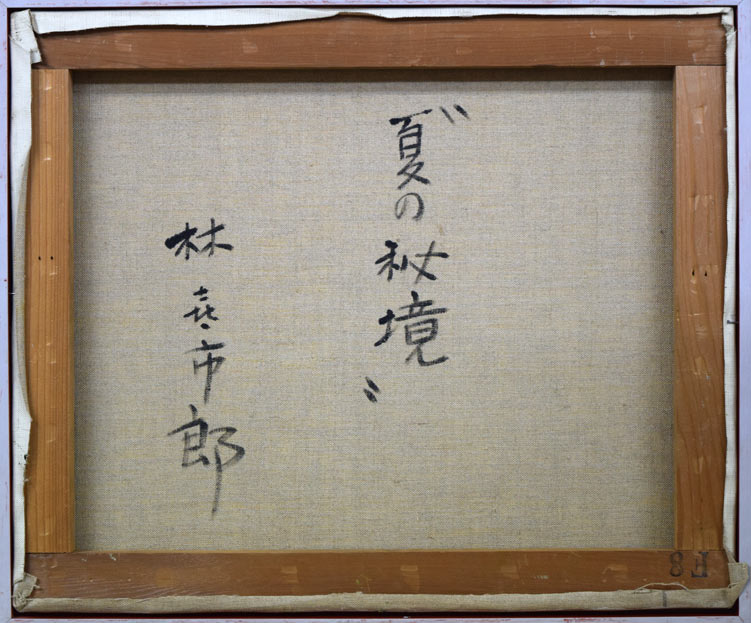 〝夏の秘境〟
林㐂市郎
F8